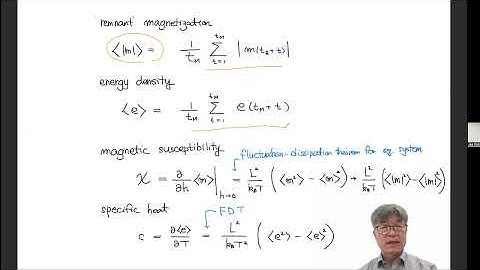 remnant magnetization
⟨|m|⟩ = 1/t_M Σ_{t=1}^{t_M} |m(t_R+t)|
energy density
⟨e⟩ = 1/t_M Σ_{t=1}^{t_M} e(t_R+t)
magnetic susceptibility
fluctuation-dissipation theorem for eq. system
χ = ∂/∂h ⟨m⟩|_{h→0} = L²/k_BT (⟨m²⟩ − ⟨m⟩²) → L²/k_BT (⟨|m|²⟩ − ⟨|m|⟩²)
specific heat
FDT
c = ∂⟨e⟩/∂T = L²/k_BT² (⟨e²⟩ − ⟨e⟩²)